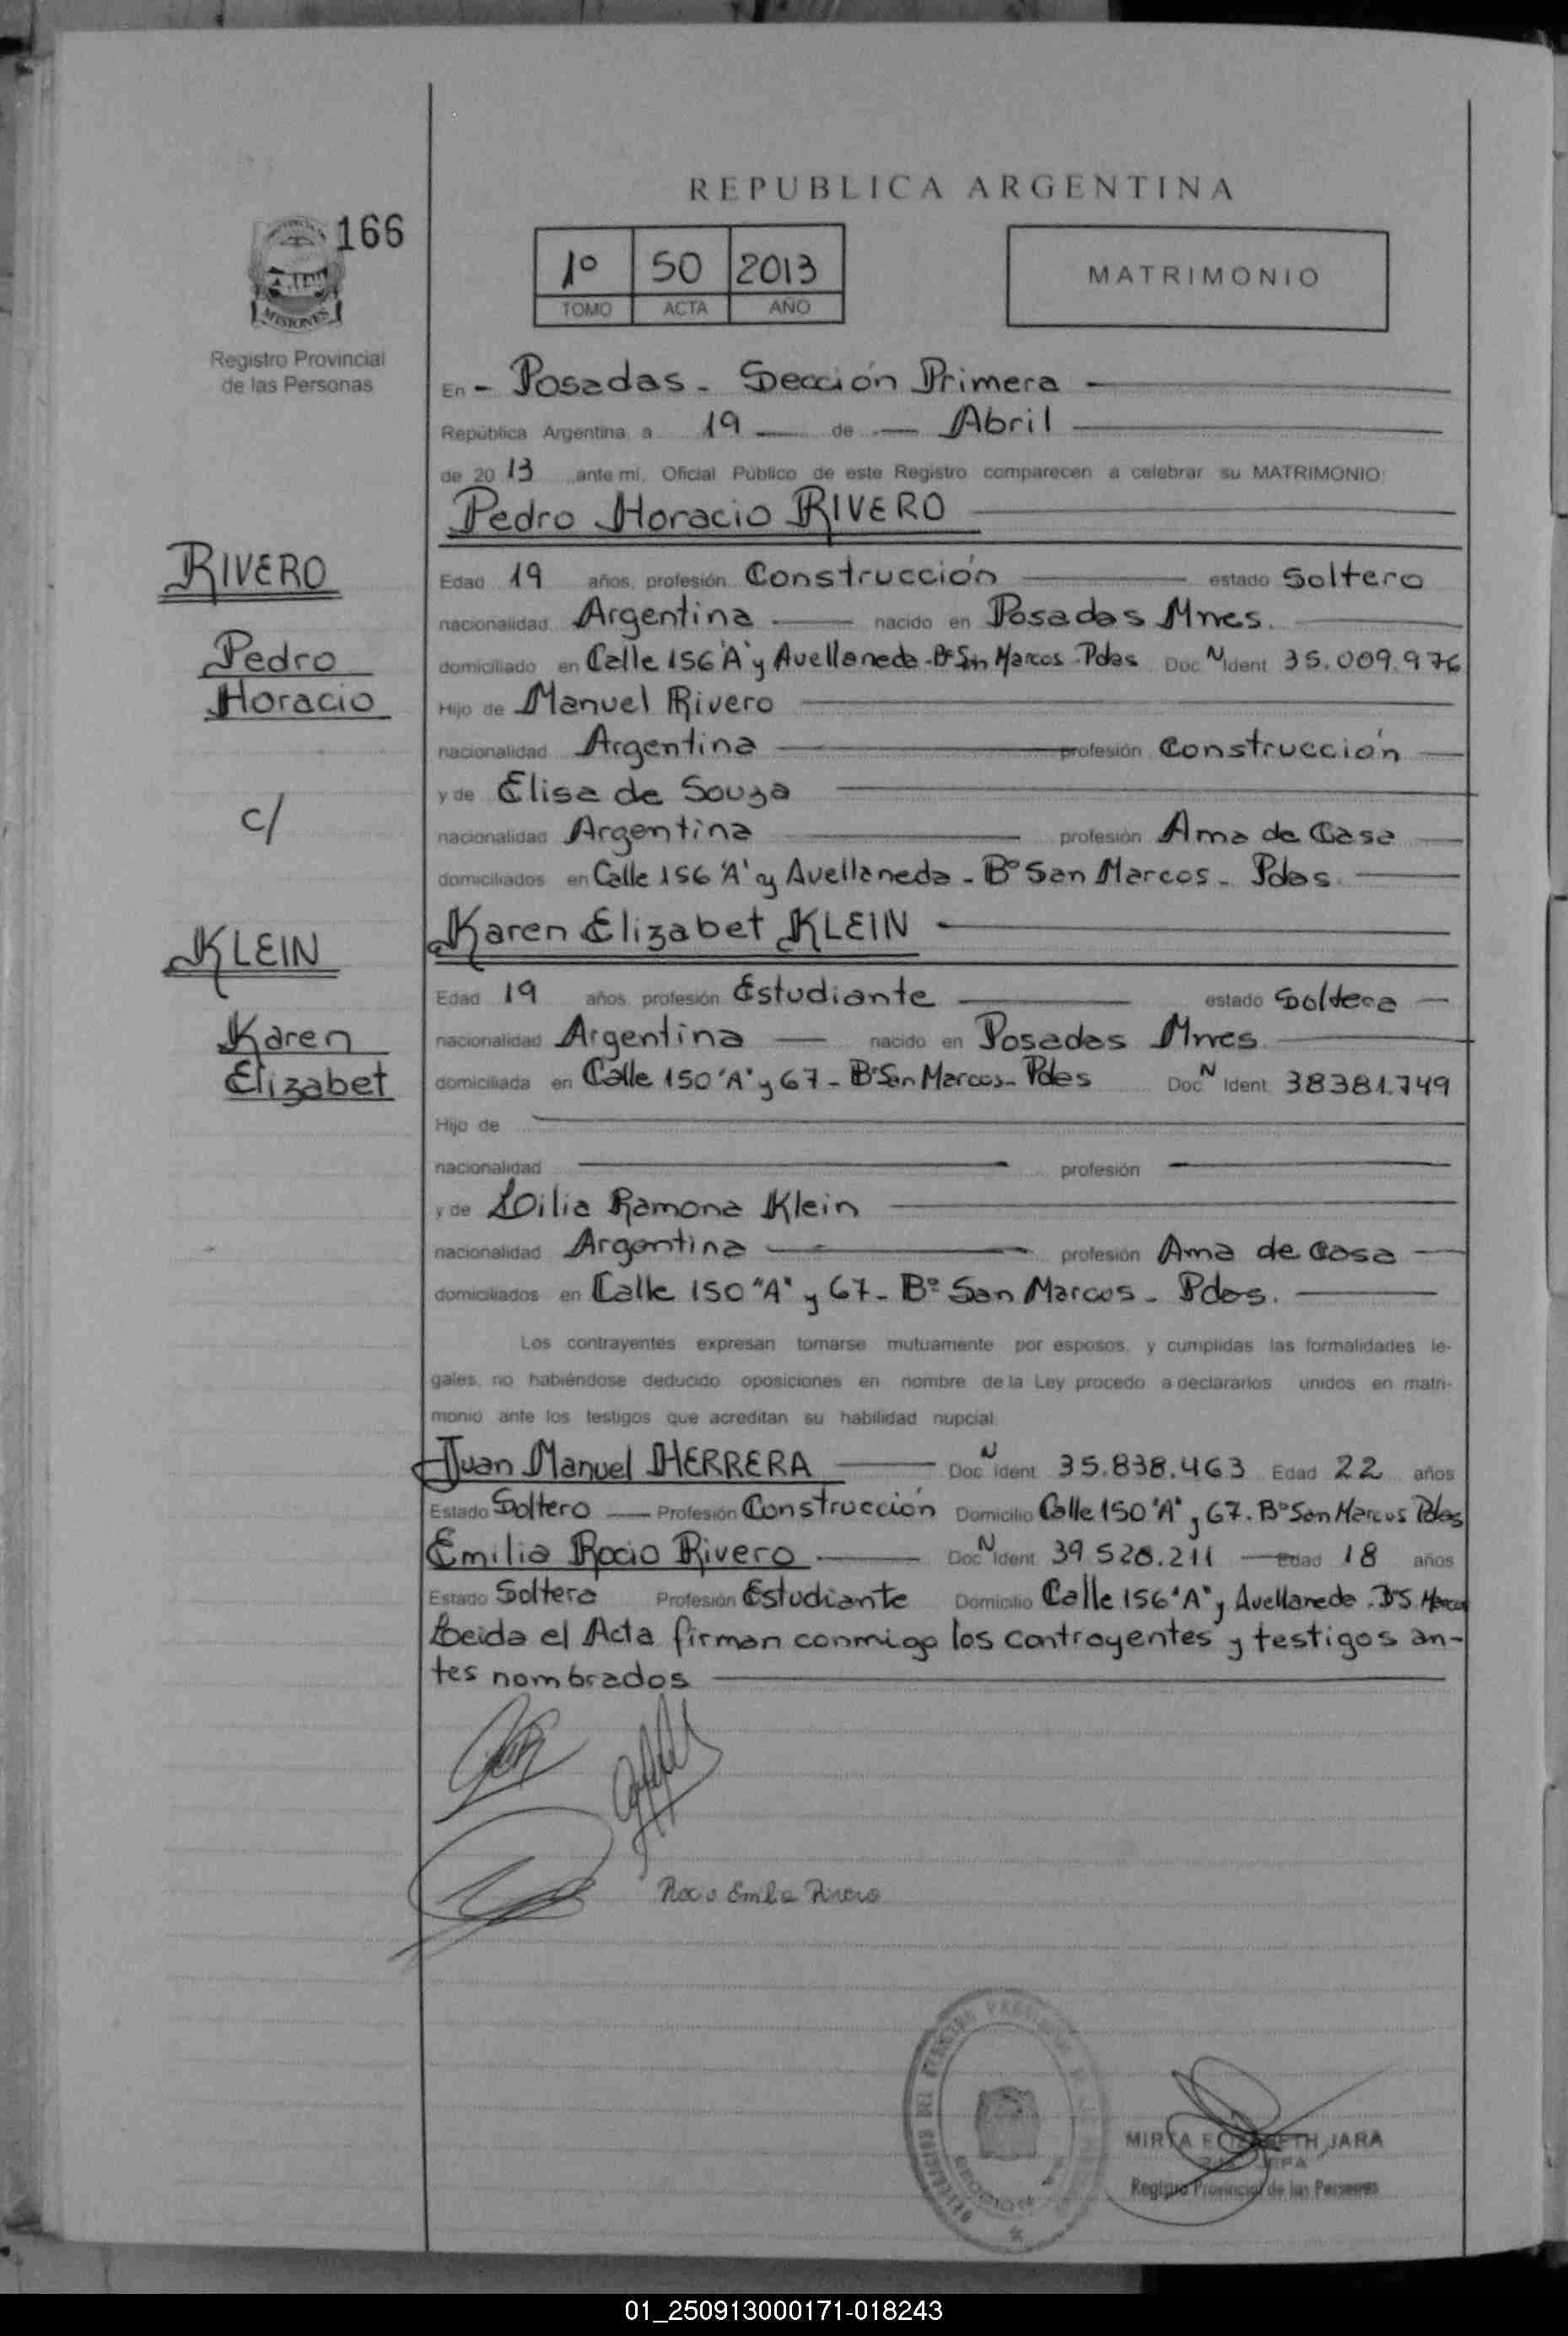 REPUBLICA ARGENTINA
166
1º 50 2013
TOMO ACTA AÑO
MATRIMONIO
MISIONES
Registro Provincial
de las Personas
En - Posadas - Sección Primera
República Argentina a 19 de Abril
de 20 13 ante mi, Oficial Público de este Registro comparecen a celebrar su MATRIMONIO
Pedro Horacio RIVERO
RIVERO
Pedro
Horacio
c/
KLEIN
Karen
Elizabet
Edad 19 años, profesión Construcción estado Soltero
nacionalidad Argentina nacido en Posadas Mnes.
domiciliado en Calle 156 "A" y Avellaneda - Bº Sn Marcos - Pdas Doc N Ident 35.009.976
Hijo de Manuel Rivero
nacionalidad Argentina profesión Construcción
y de Elisa de Souza
nacionalidad Argentina profesión Ama de Casa
domiciliados en Calle 156 "A" y Avellaneda - Bº San Marcos - Pdas.
Karen Elizabet KLEIN
Edad 19 años profesión Estudiante estado Soltera
nacionalidad Argentina nacido en Posadas Mnes.
domiciliada en Calle 150 "A" y 67 - Bº San Marcos - Pdas Doc N Ident 38381.749
Hijo de
nacionalidad profesión
y de Lilia Ramona Klein
nacionalidad Argentina profesión Ama de Casa
domiciliados en Calle 150 "A" y 67 - Bº San Marcos - Pdas.
Los contrayentes expresan tomarse mutuamente por esposos, y cumplidas las formalidades le-
gales, no habiéndose deducido oposiciones en nombre de la Ley procedo a declararlos unidos en matri-
monio ante los testigos que acreditan su habilidad nupcial
Juan Manuel HERRERA Doc N Ident 35.838.463 Edad 22 años
Estado Soltero Profesión Construcción Domicilio Calle 150 "A" y 67. Bº San Marcos Pdas
Emilia Rocio Rivero Doc N Ident 39 528.211 Edad 18 años
Estado Soltera Profesión Estudiante Domicilio Calle 156 "A" y Avellaneda. Bº S. Marcos
Leida el Acta firman conmigo los contrayentes y testigos an-
tes nombrados
Rocio Emilia Rivero
MIRTA ELIZABETH JARA
JEFA
Registro Provincial de las Personas
01_250913000171-018243